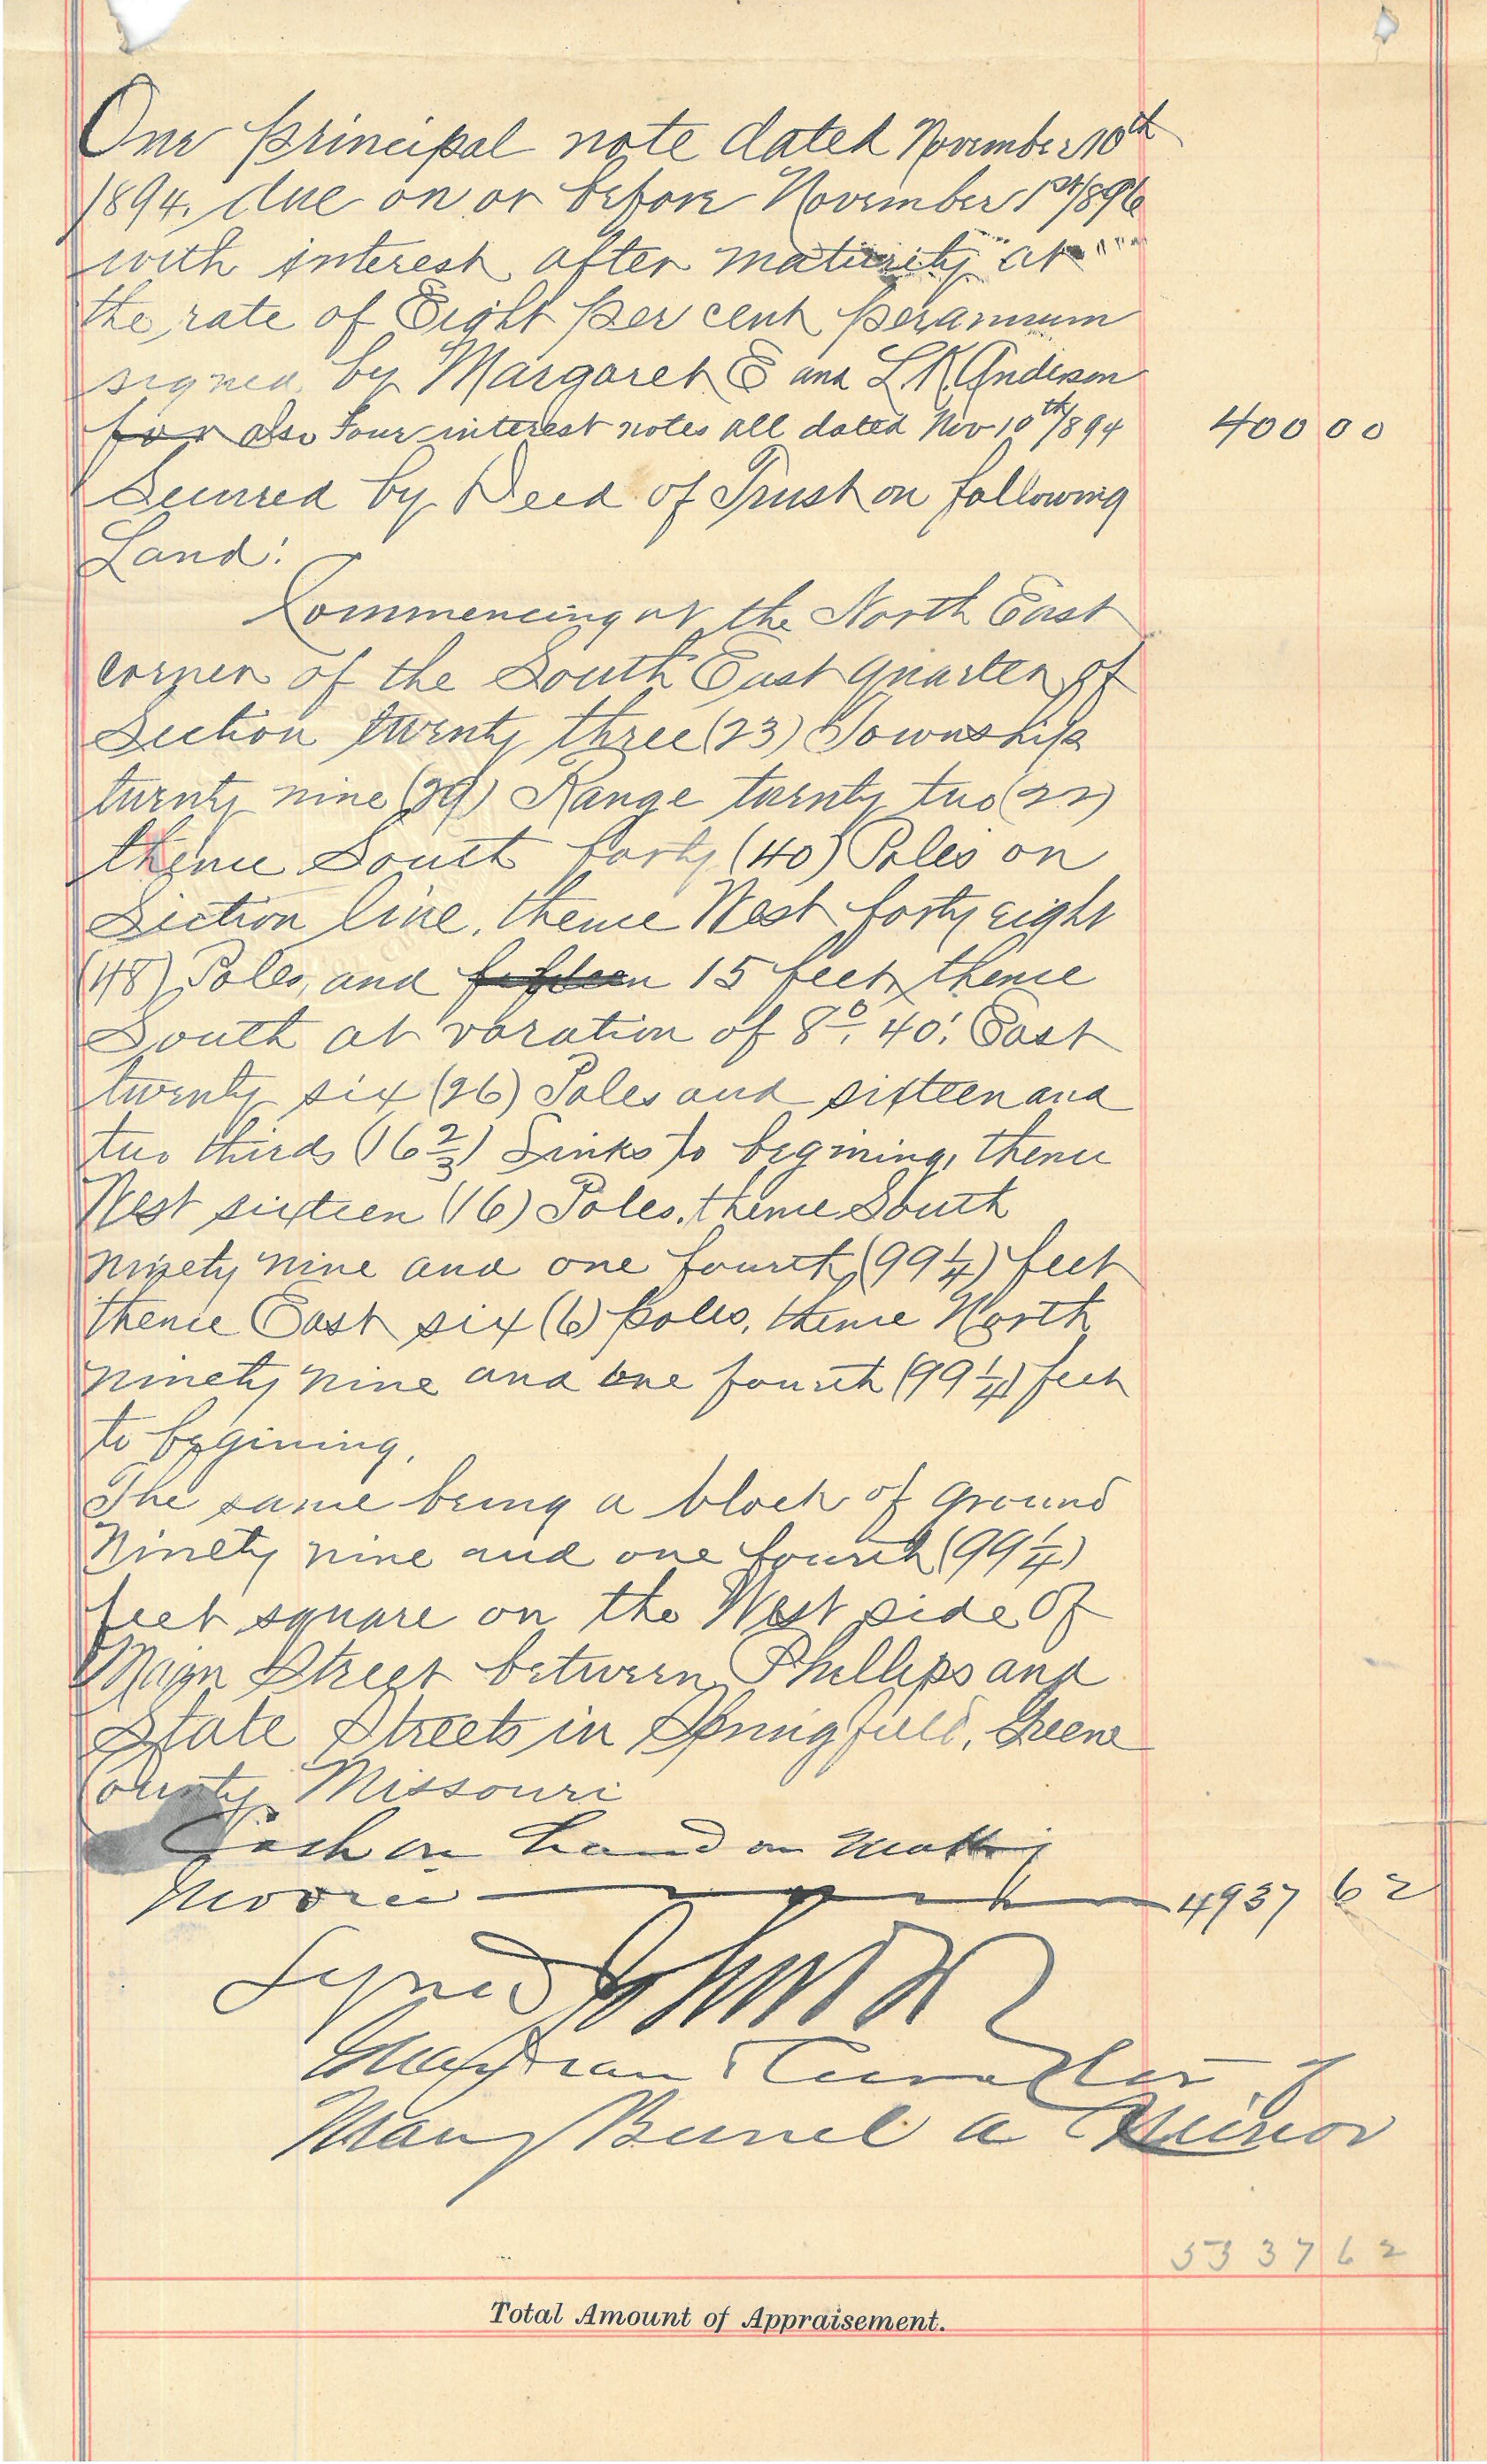 One principal note dated November 10th
1894, due on or before November 1st 1896
with interest after maturity at
the rate of Eight per cent per annum
signed by Margaret E and L.K. Anderson
for also Four interest notes all dated Nov 10th 1894 400 00
Secured by Deed of Trust on following
Land:
Commencing at the North East
corner of the South East quarter of
Section twenty three (23) Township
twenty nine (29) Range twenty two (22)
thence South forty (40) Poles on
Section line, thence West forty eight
(48) Poles, and fifteen 15 feet, thence
South at varation of 8°. 40'. East
twenty six (26) Poles and sixteen and
two thirds (16 2/3) Links to begining, thence
West sixteen (16) Poles, thence South
ninety nine and one fourth (99 1/4) feet
thence East six (6) poles, thence North
ninety nine and one fourth (99 1/4) feet
to begining.
The same being a block of ground
Ninety nine and one fourth (99 1/4)
feet square on the West side of
Main Street between Phillips and
State Streets in Springfield, Greene
County Missouri
Cash on hand on
4937 62
Signed John R
Curator of
Mary a Minor
5337 62
Total Amount of Appraisement.